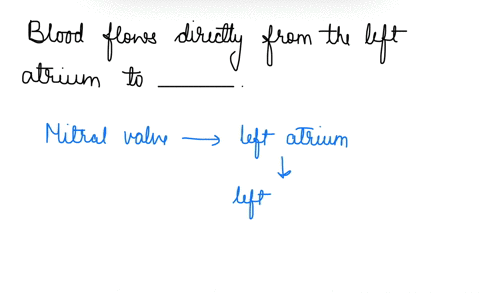 Blood flows directly from the left
atrium to ______.
Mitral valve → left atrium
↓
left